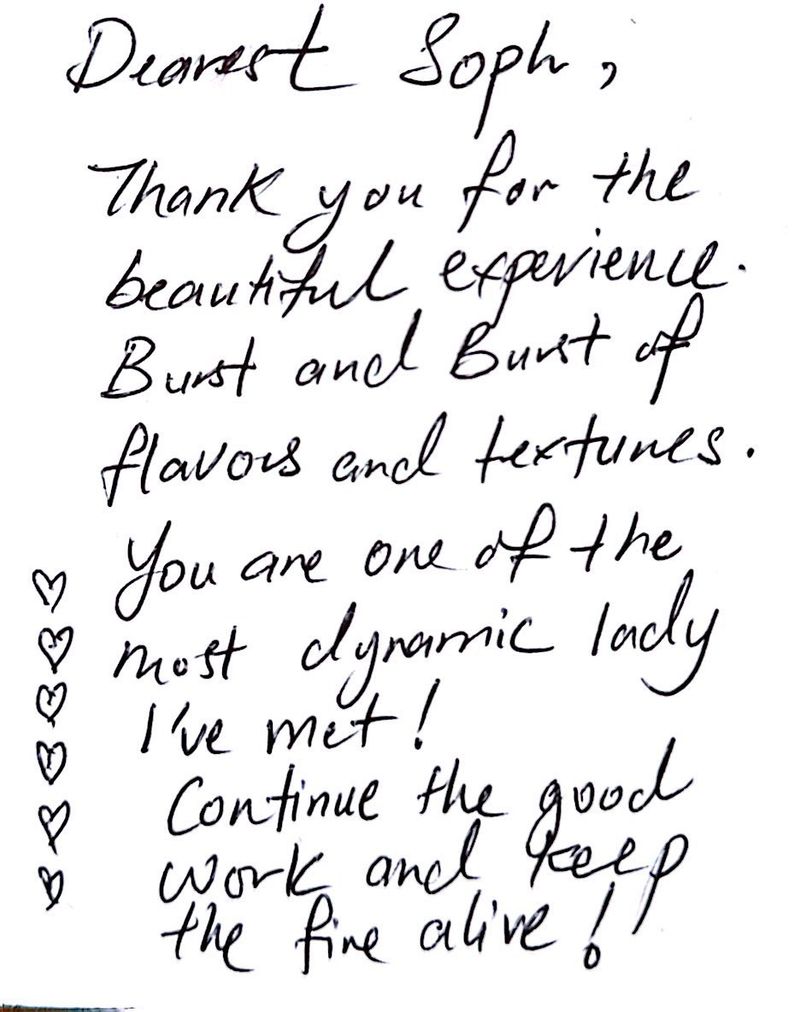 Dearest Soph,
Thank you for the
beautiful experience.
Burst and Burst of
flavors and textures.
You are one of the
most dynamic lady
I've met!
Continue the good
work and keep
the fire alive!